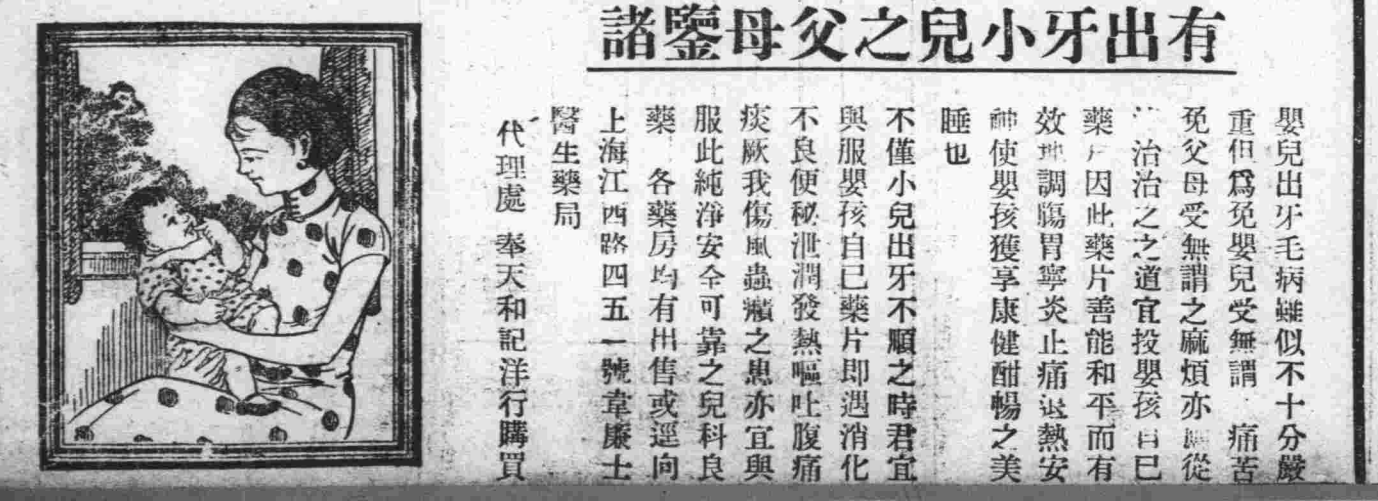 有出牙小兒之父母鑒諸
嬰兒出牙毛病雖似不十分嚴
重但爲免嬰兒受無謂 痛苦
免父母受無謂之麻煩亦 從
 治治之之道宜投嬰孩自己
藥片因此藥片善能和平而有
效地調腸胃寧炎止痛退熱安
神使嬰孩獲享康健酣暢之美
睡也
不僅小兒出牙不順之時君宜
與服嬰孩自己藥片即遇消化
不良便秘泄瀉發熱嘔吐腹痛
痰厥 傷風蟲癪之患亦宜與
服此純淨安全可靠之兒科良
藥 各藥房均有出售或逕向
上海江西路四五一號韋廉士
醫生藥局
代理處 奉天和記洋行購買